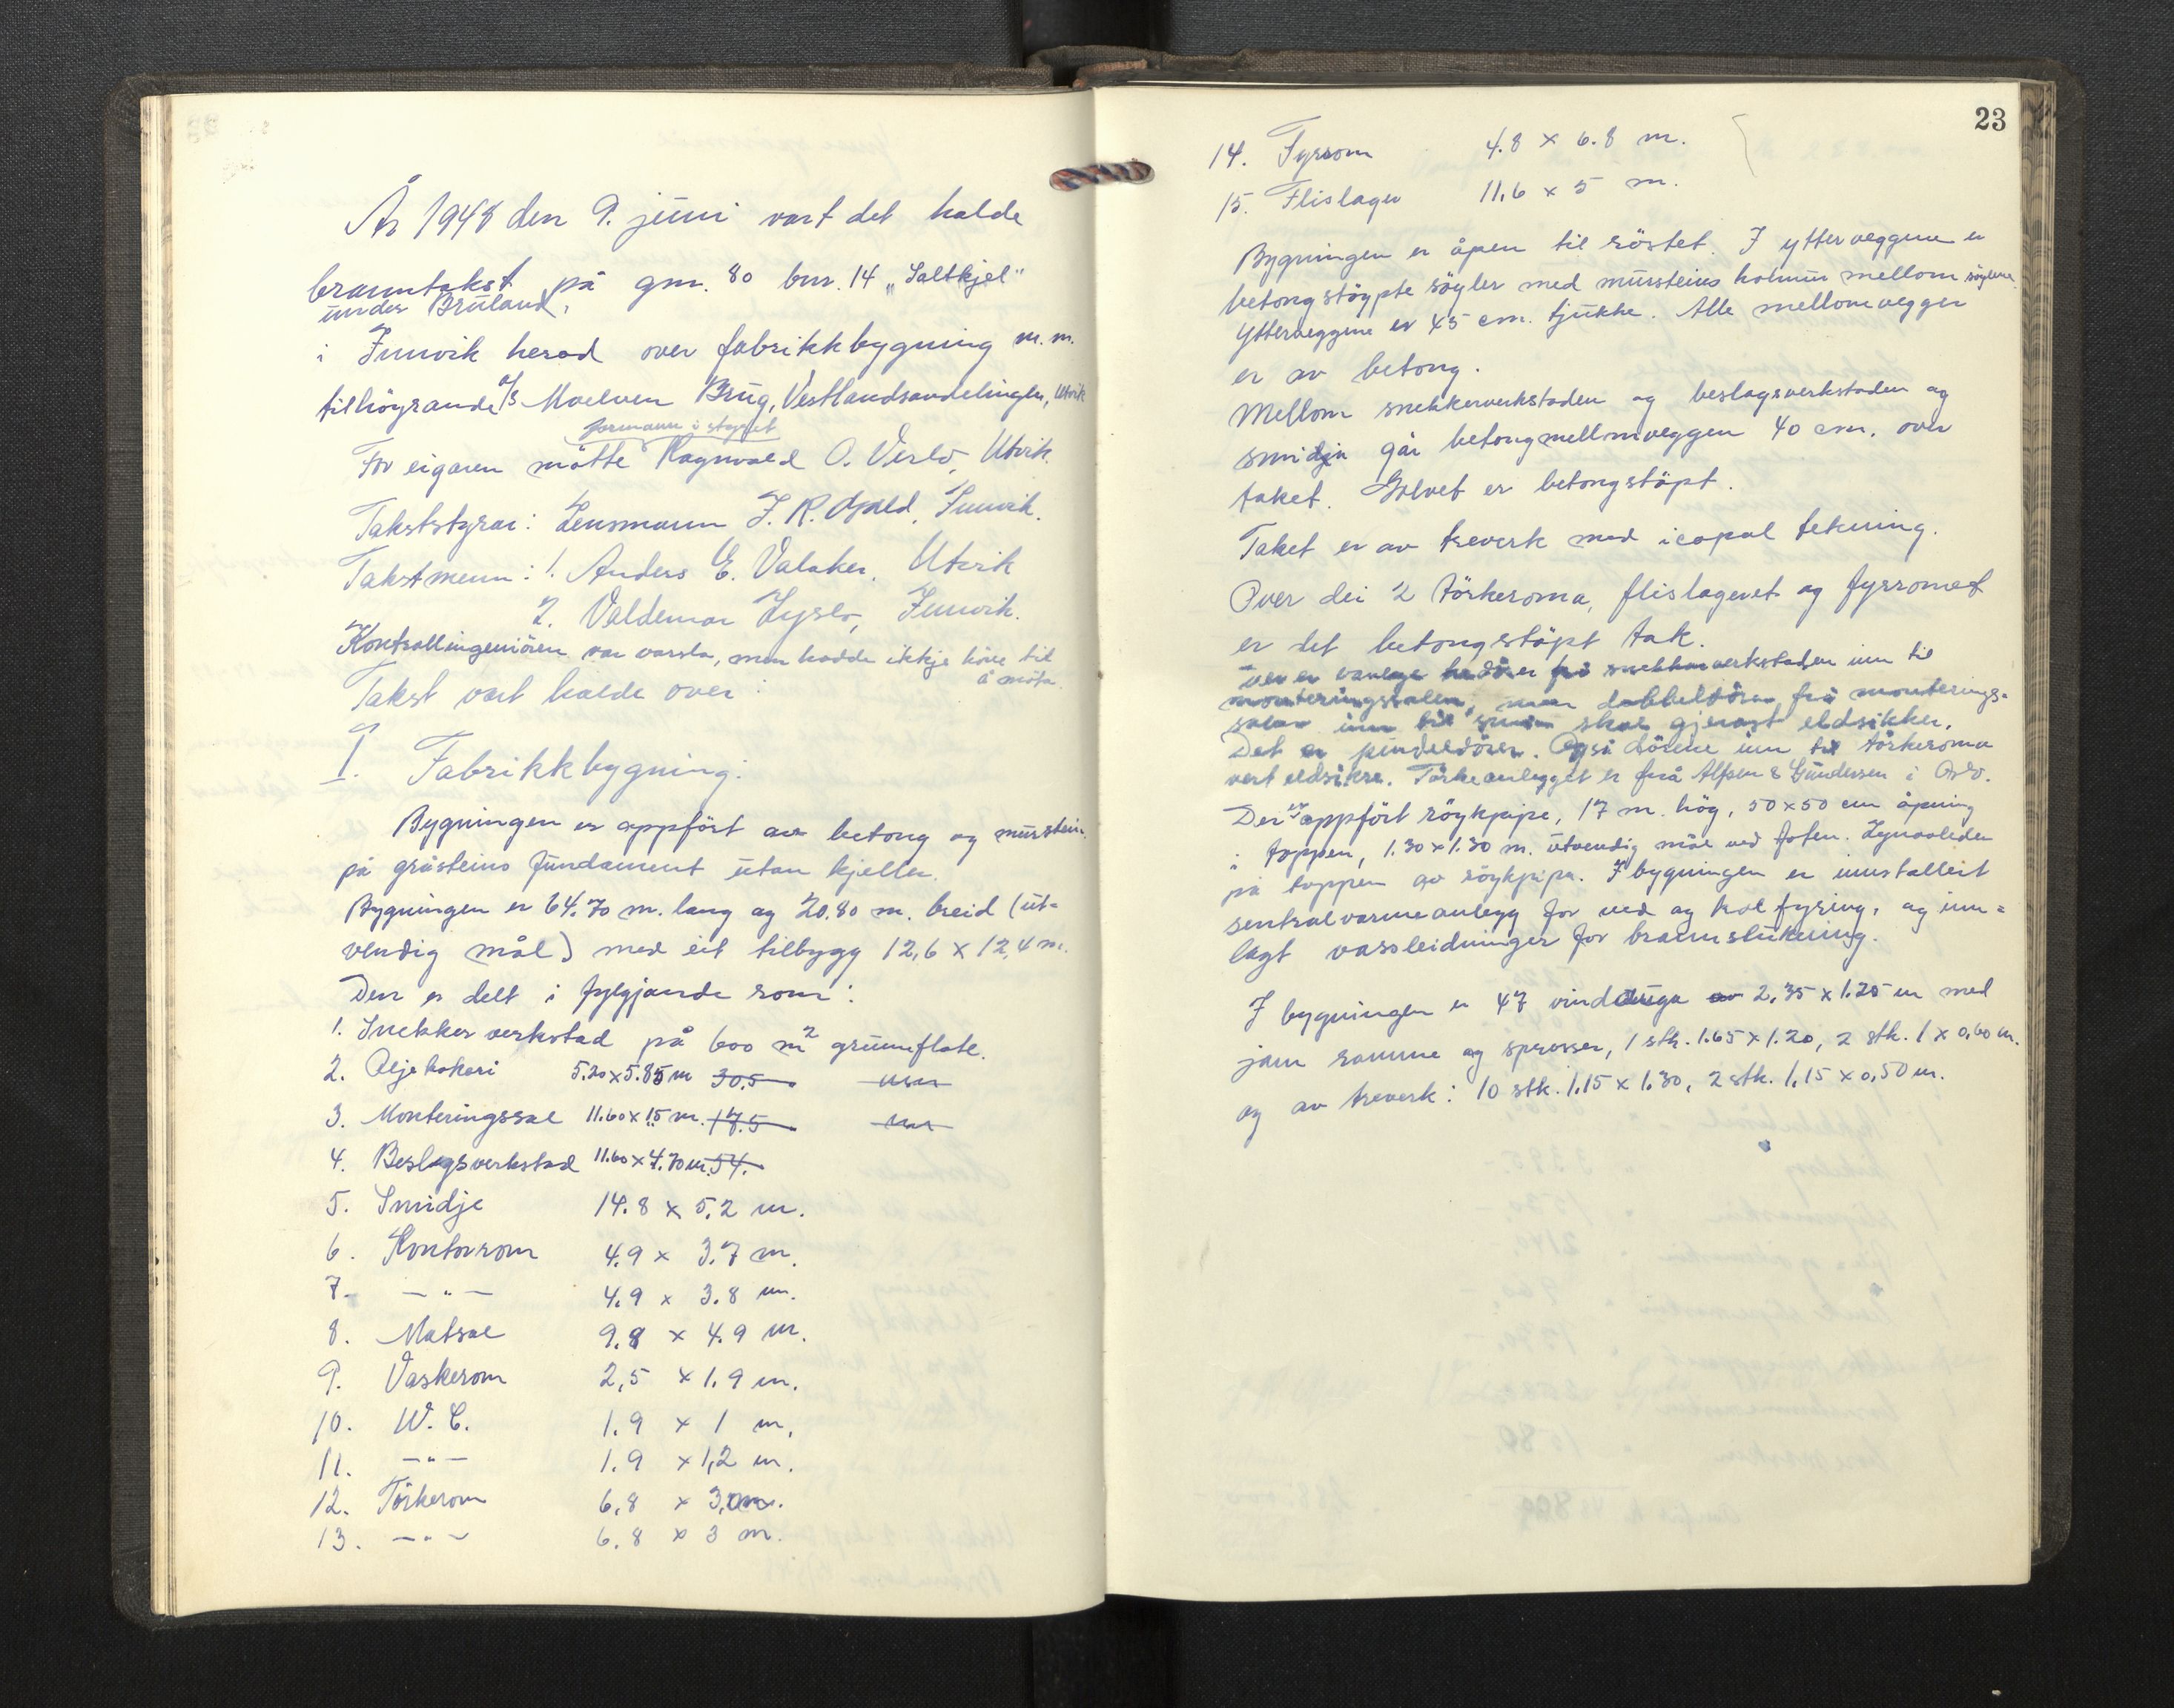 År 1948 den 9. juni vart det halde
branntakst på gnr. 80 bnr. 14 „Saltkjel"
under Bruland,
i Innvik herad over fabrikkbygning m.m.
tilhöyrande A/S Moelven Brug, Vestlandsavdelingen, Utvik
formann i styret
For eigaren mötte Ragnvald O. Verlo, Utvik.
Takststyrar: Lensmann J. R. Opheim, Innvik.
Takstmenn: 1. Anders E. Valaker, Utvik
2. Valdemar Lyslo, Innvik.
Kontrollingeniören var varsla, men hadde ikkje höve til
å möta.
Takst vart halde over:
I. Fabrikkbygning:
Bygningen er oppfört av betong og murstein
på gråsteins fundament utan kjeller.
Bygningen er 64.70 m. lang og 20.80 m. breid (ut-
vendig mål) med eit tilbygg 12,6 x 12,4 m.
Den er delt i fylgjande rom:
1. Snekker verkstad på 600 m² grunnflate.
2. Oljekokeri 5.20 x 5.85 m 30,5
3. Monteringssal 11.60 x 15 m. 17.5
4. Beslagsverkstad 11.60 x 4.70 m. 54.
5. Smidje 14.8 x 5.2 m.
6. Kontorrom 4.9 x 3.7 m.
7. — „ — 4.9 x 3.8 m.
8. Matsal 9.8 x 4.9 m.
9. Vaskerom 2,5 x 1.9 m.
10. W. C. 1.9 x 1 m.
11. — „ — 1.9 x 1,2 m.
12. Törkerom 6,8 x 3,0 m.
13. — „ — 6.8 x 3 m.
23
14. Fyrrom 4.8 x 6.8 m.
15. Flislager 11.6 x 5 m.
Bygningen er åpen til röstet. I ytterveggene er
betongstöypte söyler med mursteins holmur mellom söylene
Ytterveggene er 45 cm. tjukke. Alle mellomvegger
er av betong.
Mellom snekkerverkstaden og beslagsverkstaden og
smidja går betongmellomveggen 40 cm. over
taket. Golvet er betongstöpt.
Taket er av treverk med icopal tekning.
Over dei 2 törkeroma, flislageret og fyrromet
er det betongstöpt tak.
Der er vanlege tredörer frå snekkerverkstaden inn til
monteringssalen, men dobbeldören frå monterings-
salen inn til smien skal gjerast eldsikker.
Det er pendeldörer. Også dörene inn til törkeroma
vert eldsikre. Törkeanlegget er frå Alfsen & Gundersen i Oslo.
Der er oppfört röykpipe, 17 m. hög, 50 x 50 cm åpning
i toppen, 1.30 x 1.30 m. utvendig mål ved foten. Lynavleder
på toppen av röykpipa. I bygningen er innstallert
sentralvarmeanlegg for ved og kol fyring, og inn=
lagt vassleidninger for brannslukning.
I bygningen er 47 vindauga av 2,35 x 1.25 m med
jarn ramme og sprosser, 1 stk. 1.65 x 1.20, 2 stk. 1 x 0,60 m.
og av treverk: 10 stk. 1.15 x 1.30, 2 stk. 1.15 x 0,50 m.